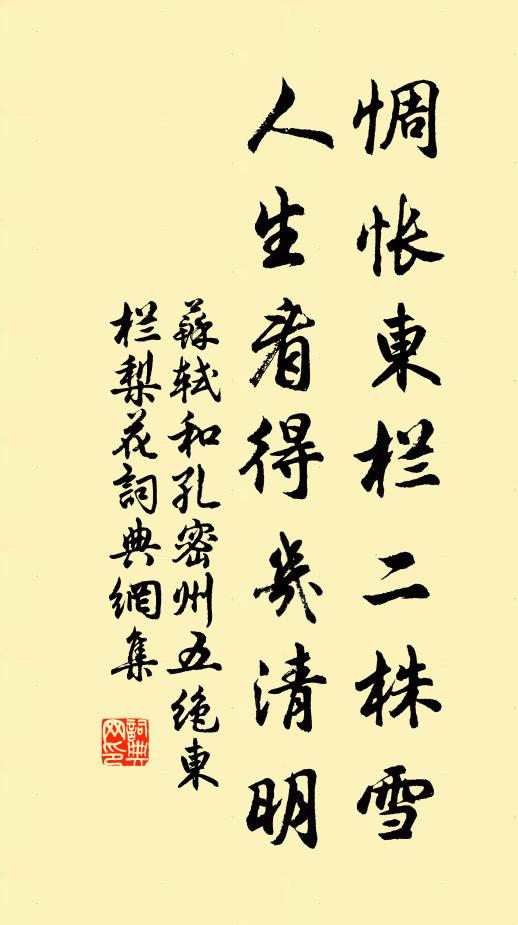 惆怅東栏二株雪
人生看得幾清明
蘇轼和孔密州五绝東
栏梨花詞典網集
詞典网印